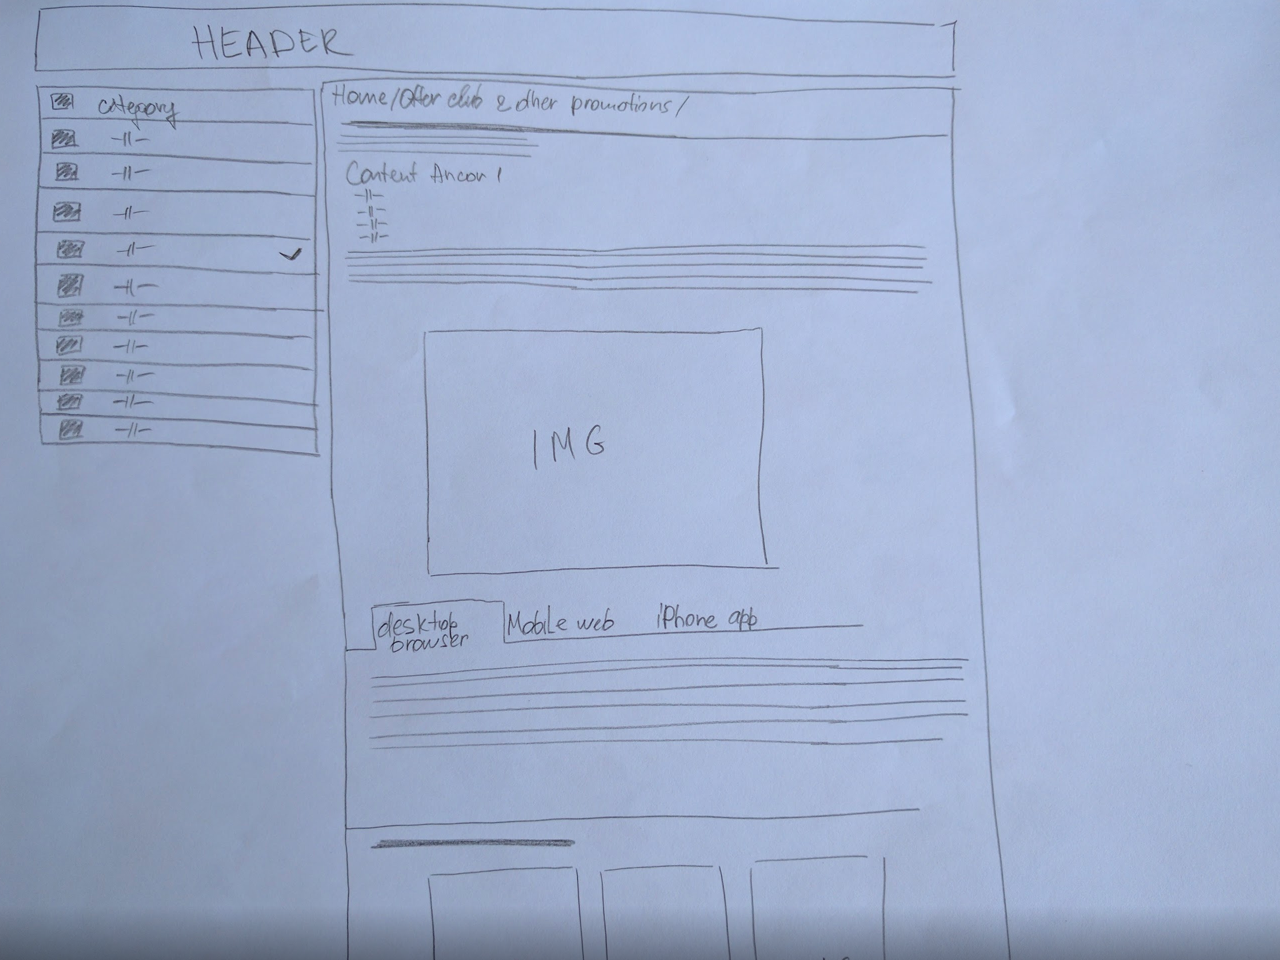 HEADER
category
-||-
-||-
-||-
-||-
-||-
-||-
-||-
-||-
-||-
-||-
Home/Offer club & other promotions/
Content Ancor 1
-||-
-||-
-||-
-||-
IMG
desktop browser
Mobile web
iPhone app